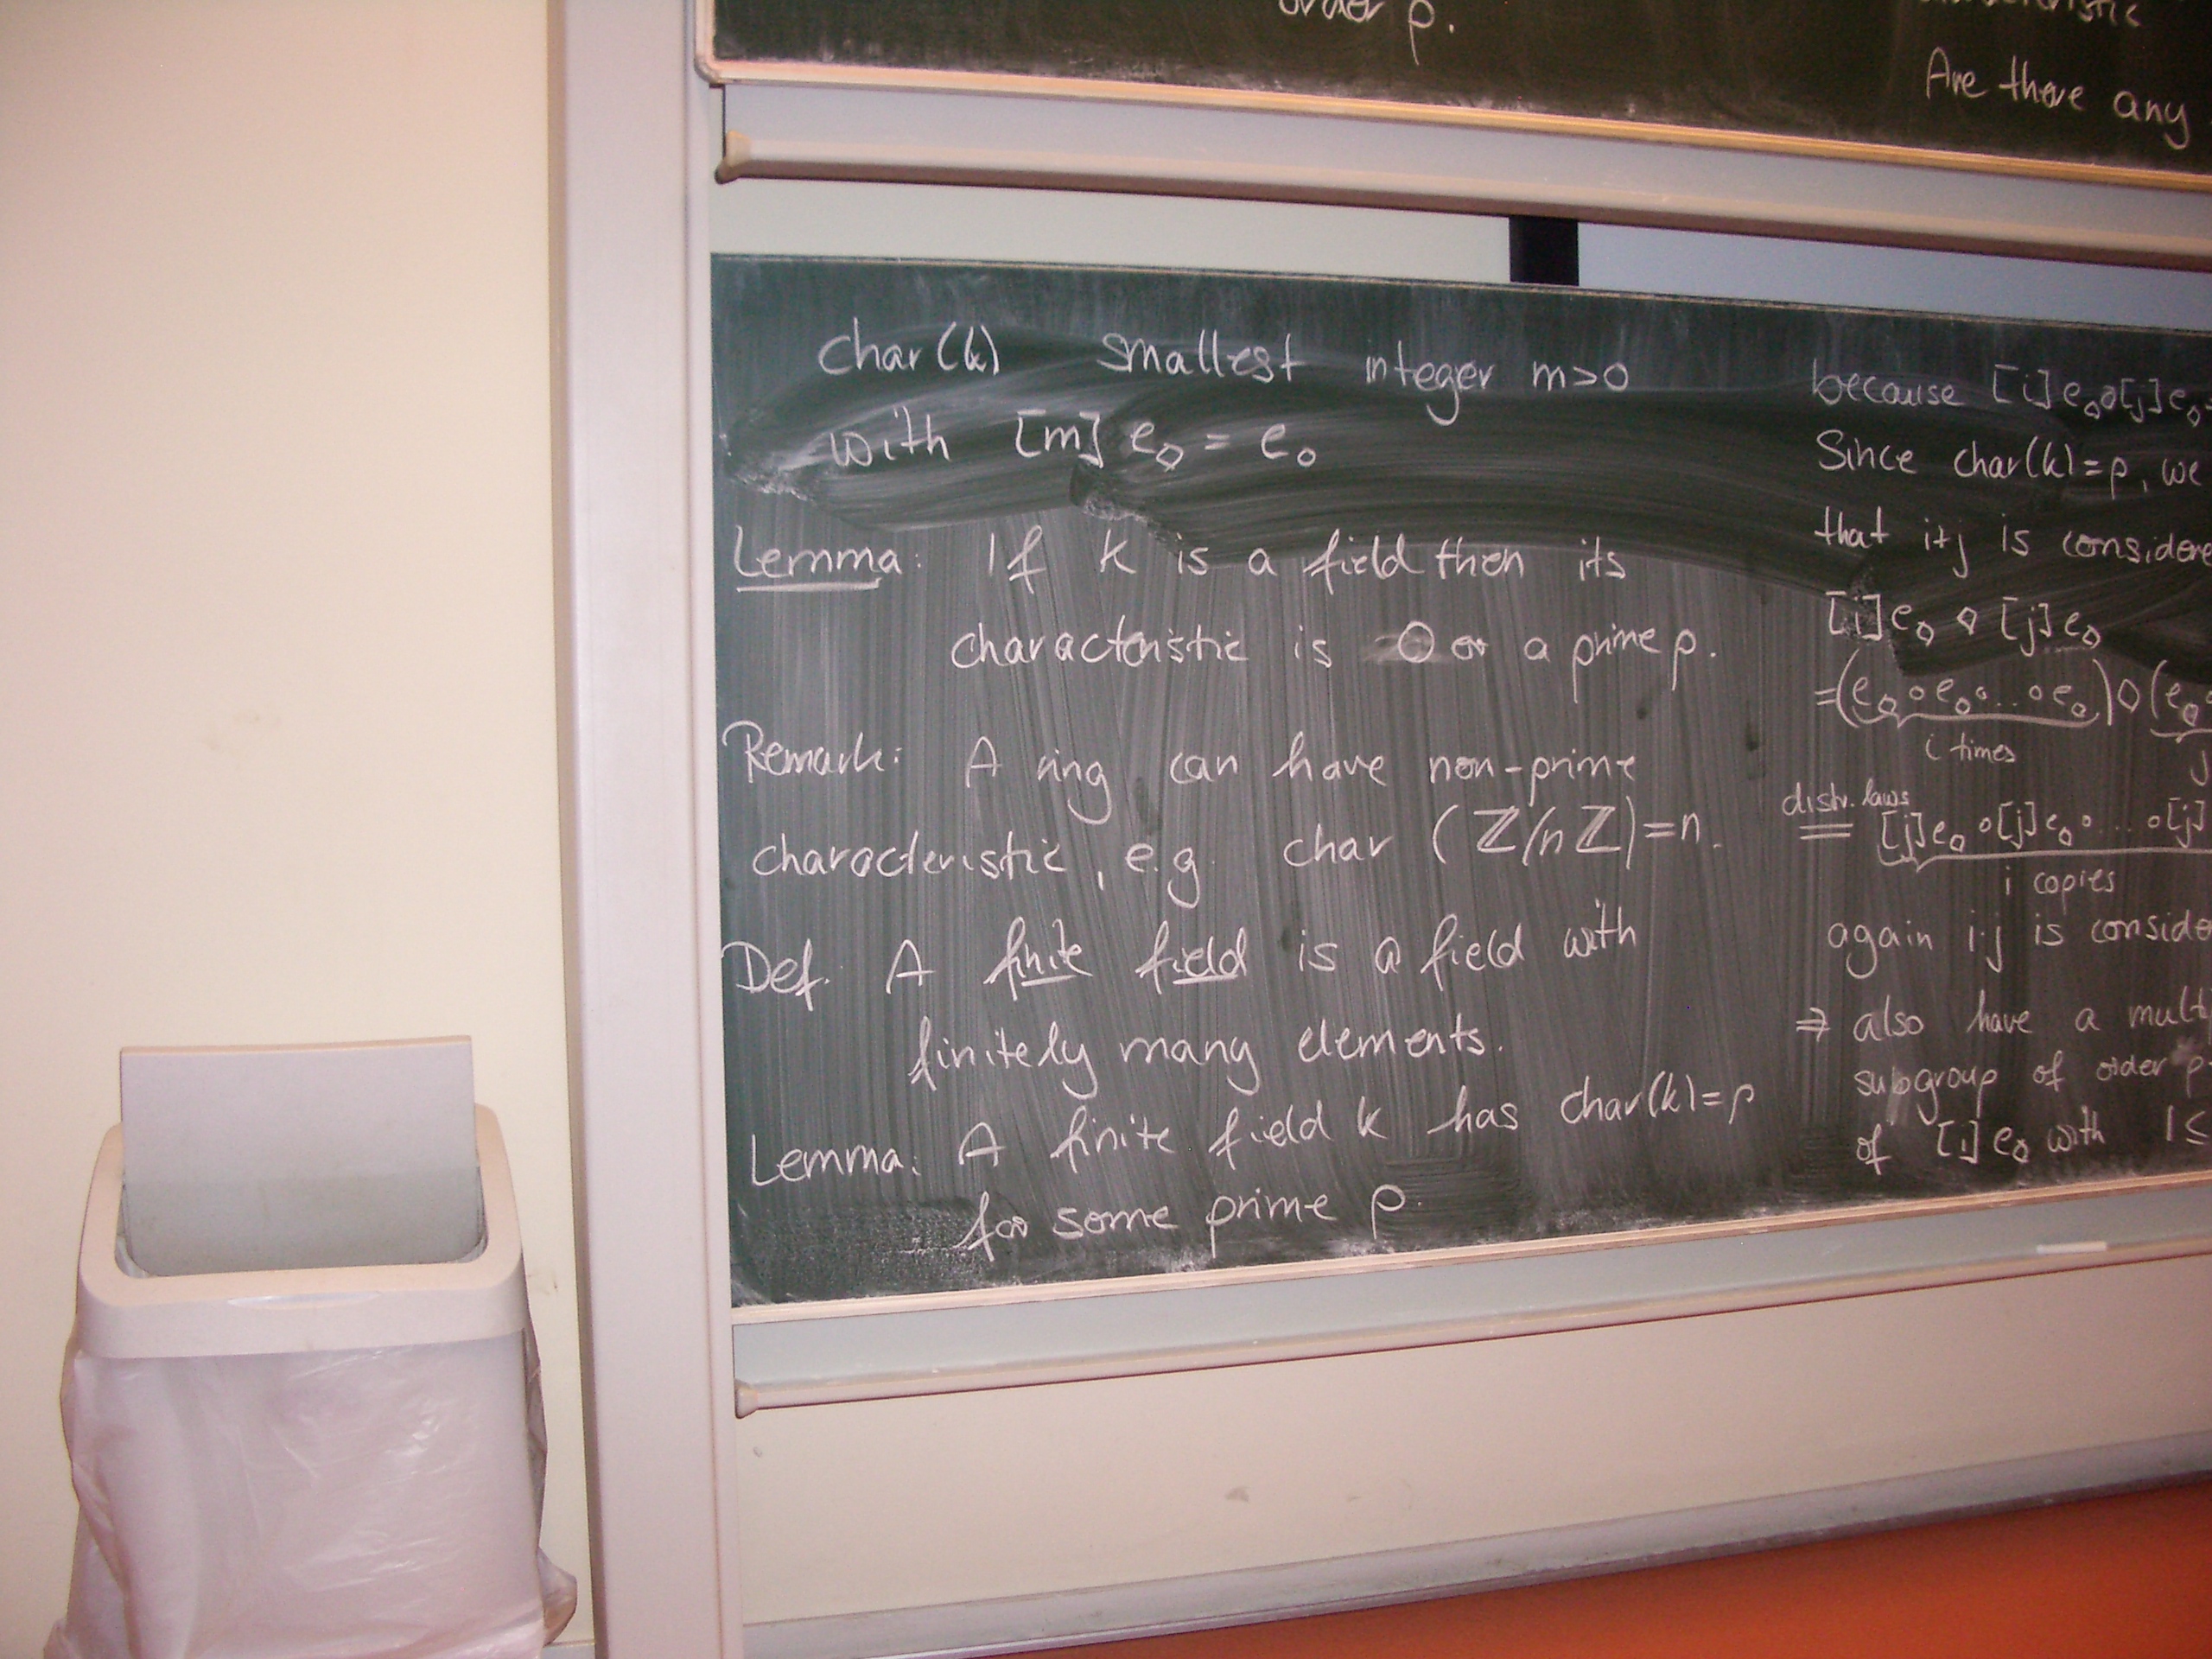 order p.
Are there any
char(k) smallest integer m>0
with [m] e◇ = e∘
Lemma: If k is a field then its
characteristic is 0 or a prime p.
Remark: A ring can have non-prime
characteristic, e.g. char (ℤ/nℤ)=n.
Def. A finite field is a field with
finitely many elements.
Lemma: A finite field k has char(k)=p
for some prime p.
because [i]e◇∘[j]e◇=
Since char(k)=p, we
that i+j is
[i]e◇ ◇ [j]e◇
=(e◇∘e◇∘...∘e◇)◇(e◇
i times
j
distr. laws
= [j]e◇∘[j]e◇∘...∘[j]
i copies
again i·j is
⇒ also have a
subgroup of order p-
of [i]e◇ with 1≤